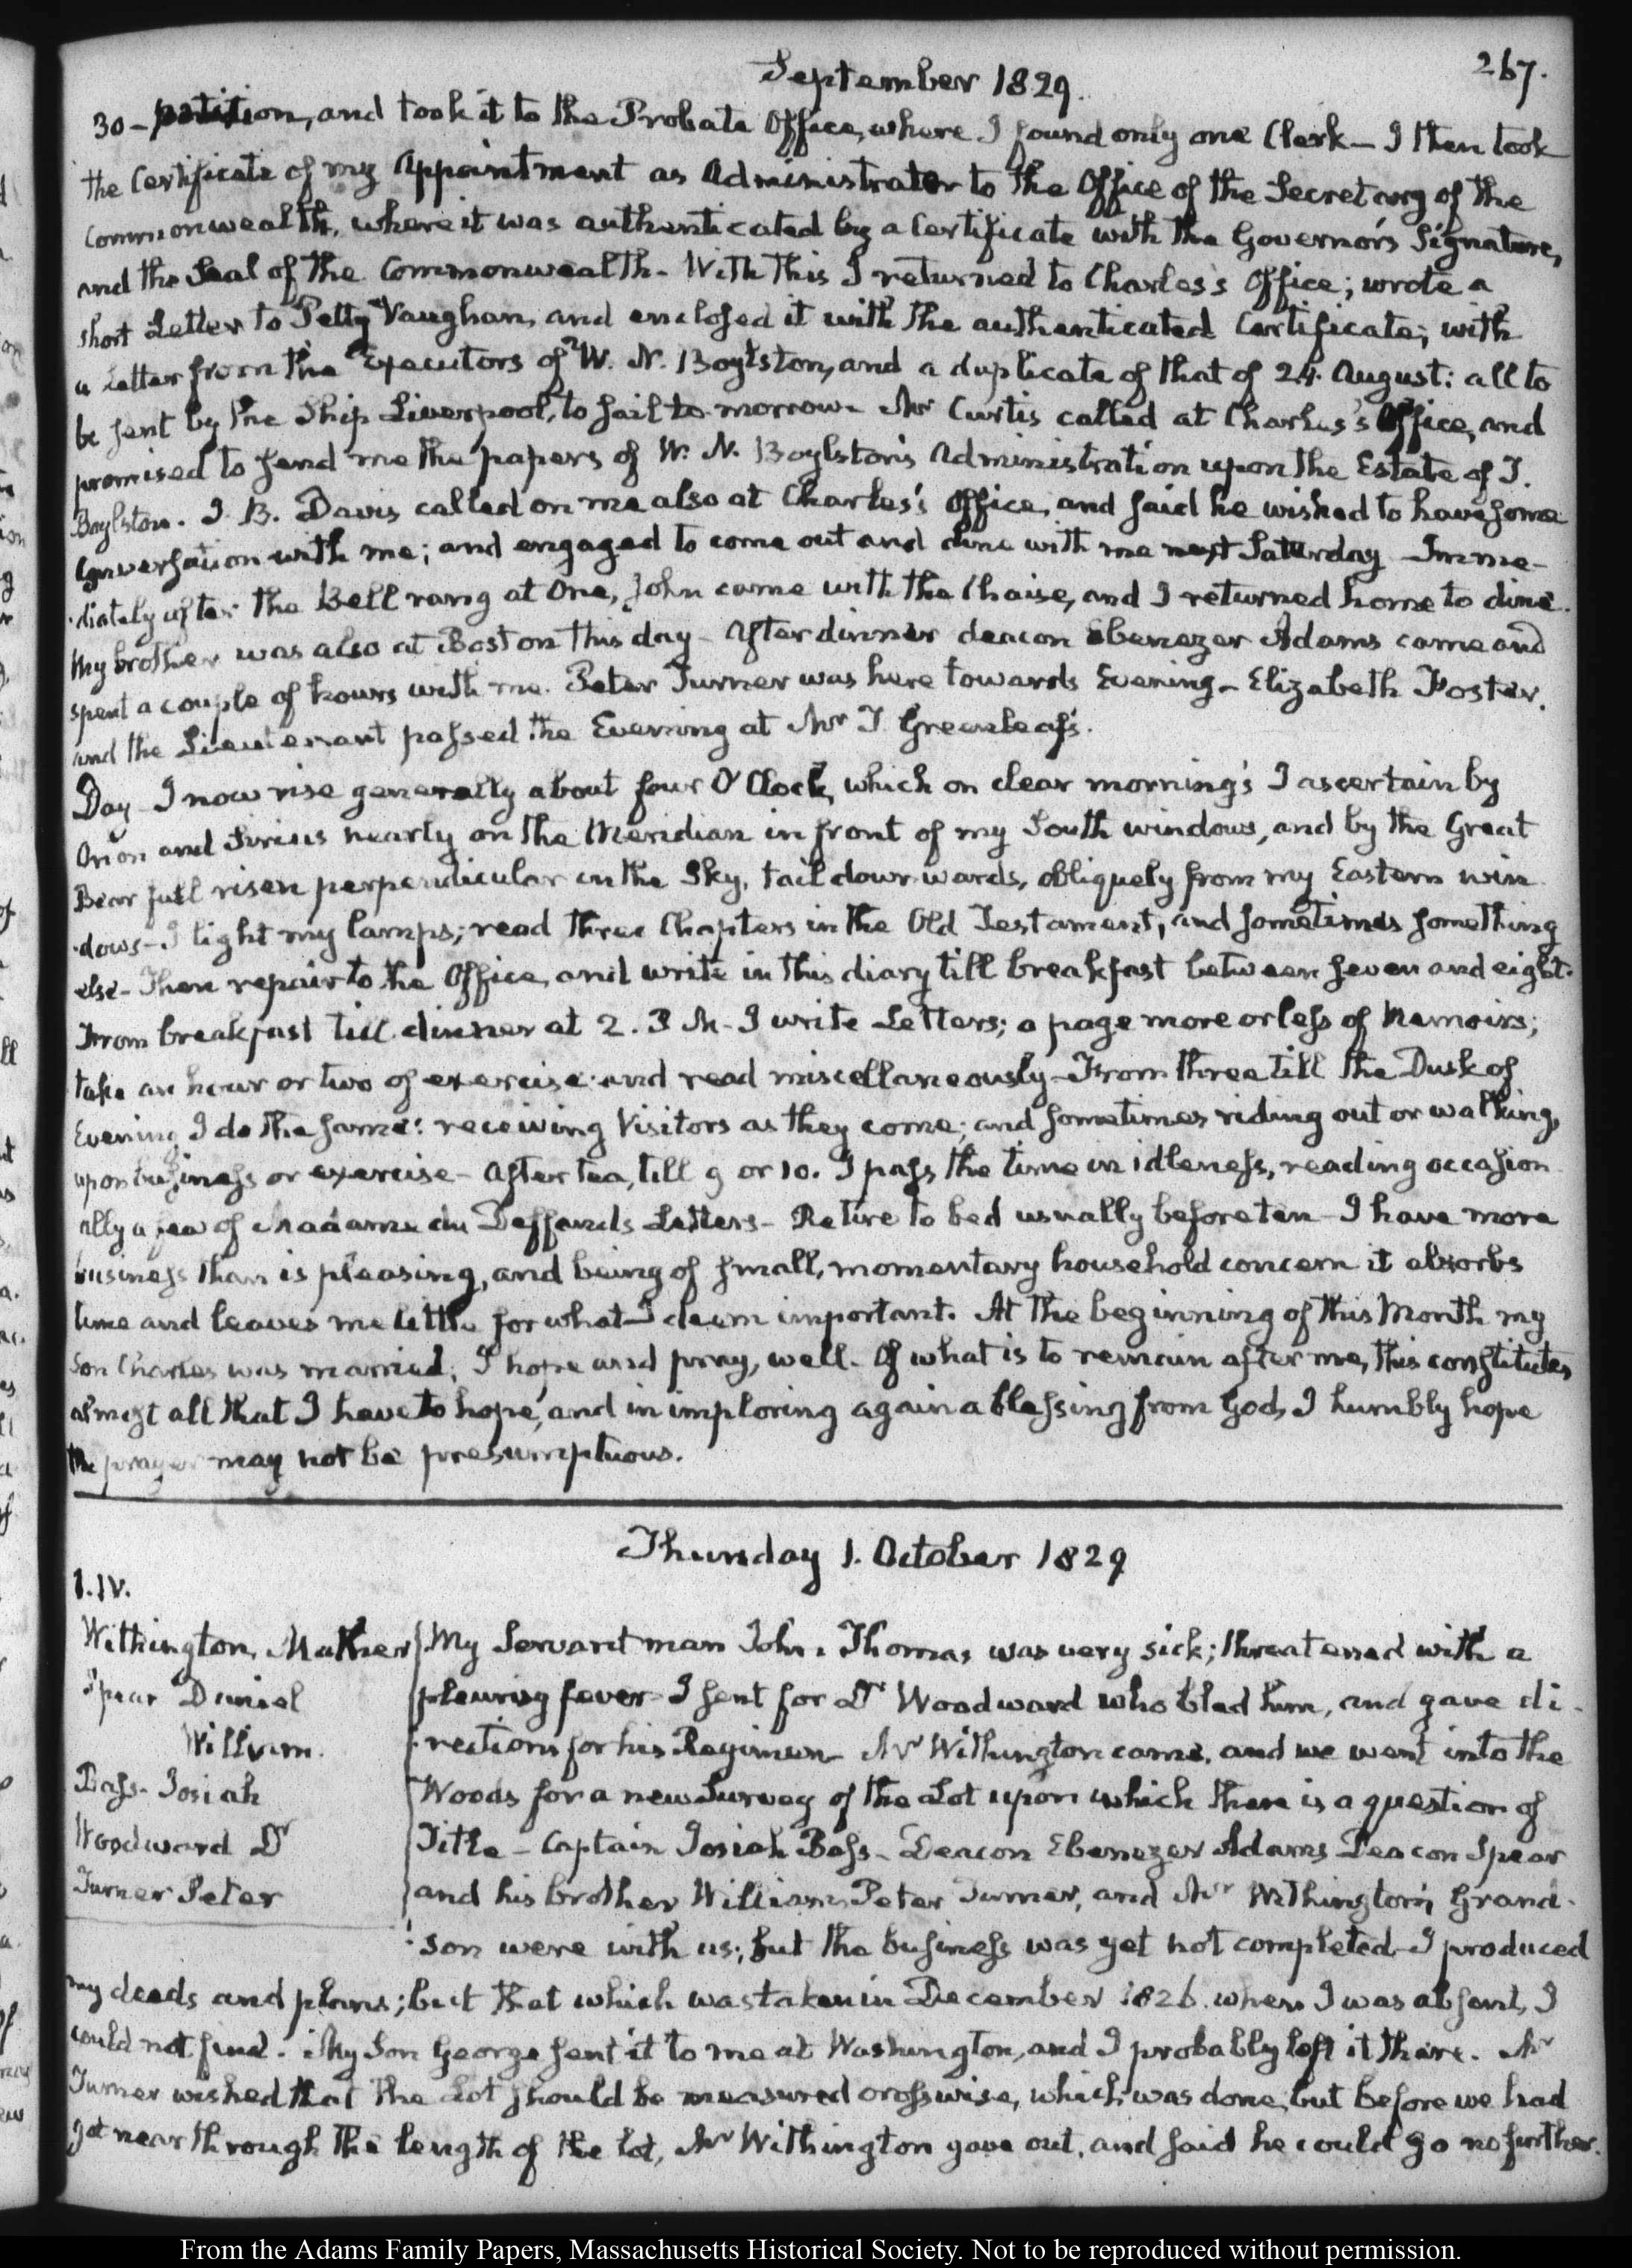 267.
September 1829.
30 - petition, and took it to the Probate Office, where I found only one Clerk - I then took
the Certificate of my Appointment as Administrator to the Office of the Secretary of the
Commonwealth, where it was authenticated by a Certificate with the Governor's Signature,
and the Seal of the Commonwealth - With this I returned to Charles's Office; wrote a
short Letter to Petty Vaughan, and enclosed it with the authenticated Certificate; with
a Letter from the Executors of W. N. Boylston, and a duplicate of that of 24. August: all to
be sent by the Ship Liverpool, to sail to-morrow - Mr Curtis called at Charles's Office, and
promised to send me the papers of W. N. Boylston's Administration upon the Estate of T.
Boylston. I. B. Davis called on me also at Charles's Office, and said he wished to have some
Conversation with me; and engaged to come out and dine with me next Saturday - Imme-
-diately after the Bell rang at One, John came with the Chaise, and I returned home to dine.
My brother was also at Boston this day - After dinner deacon Ebenezer Adams came and
spent a couple of hours with me. Peter Turner was here towards Evening - Elizabeth Foster.
and the Lieutenant passed the Evening at Mr T. Greenleaf's.
Day - I now rise generally about four O'Clock, which on clear morning's I ascertain by
Orion and Sirius nearly on the Meridian in front of my South windows, and by the Great
Bear full risen perpendicular in the Sky, tail downwards, obliquely from my Eastern win
-dows - I light my lamps; read three Chapters in the Old Testament, and sometimes something
else - Then repair to the Office, and write in this diary till breakfast between seven and eight.
From breakfast till dinner at 2. 3 M - I write Letters; a page more or less of Memoirs;
take an hour or two of exercise and read miscellaneously - From three till the Dusk of
Evening I do the same: receiving Visitors as they come; and sometimes riding out or walking,
upon business or exercise - After tea, till 9 or 10. I pass the time in idleness, reading occasion
ally a few of Madame du Deffand's Letters - Retire to bed usually before ten - I have more
business than is pleasing, and being of small, momentary household concern it absorbs
time and leaves me little for what I deem important. At the beginning of this Month my
Son Charles was married; I hope and pray, well. Of what is to remain after me, this constitutes
almost all that I have to hope, and in imploring again a blessing from God, I humbly hope
the prayer may not be presumptuous.
Thursday 1. October 1829
1. IV.
Withington, Mather
Spear Daniel
William.
Bass - Josiah
Woodward Dr
Turner Peter
My Servant man John Thomas was very sick; threatened with a
pleurisy fever - I sent for Dr Woodward who bled him, and gave di
-rections for his Regimen - Mr Withington came, and we went into the
Woods for a new Survey of the Lot upon which there is a question of
Title - Captain Josiah Bass - Deacon Ebenezer Adams Deacon Spear
and his brother William, Peter Turner, and Mr Withington's Grand-
-son were with us; but the business was yet not completed - I produced
my deeds and plans; but that which was taken in December 1826. when I was absent, I
could not find. My Son George sent it to me at Washington, and I probably left it there. Mr
Turner wished that the Lot should be measured crosswise, which was done, but before we had
got near through the length of the lot, Mr Withington gave out, and said he could go no further.
From the Adams Family Papers, Massachusetts Historical Society. Not to be reproduced without permission.